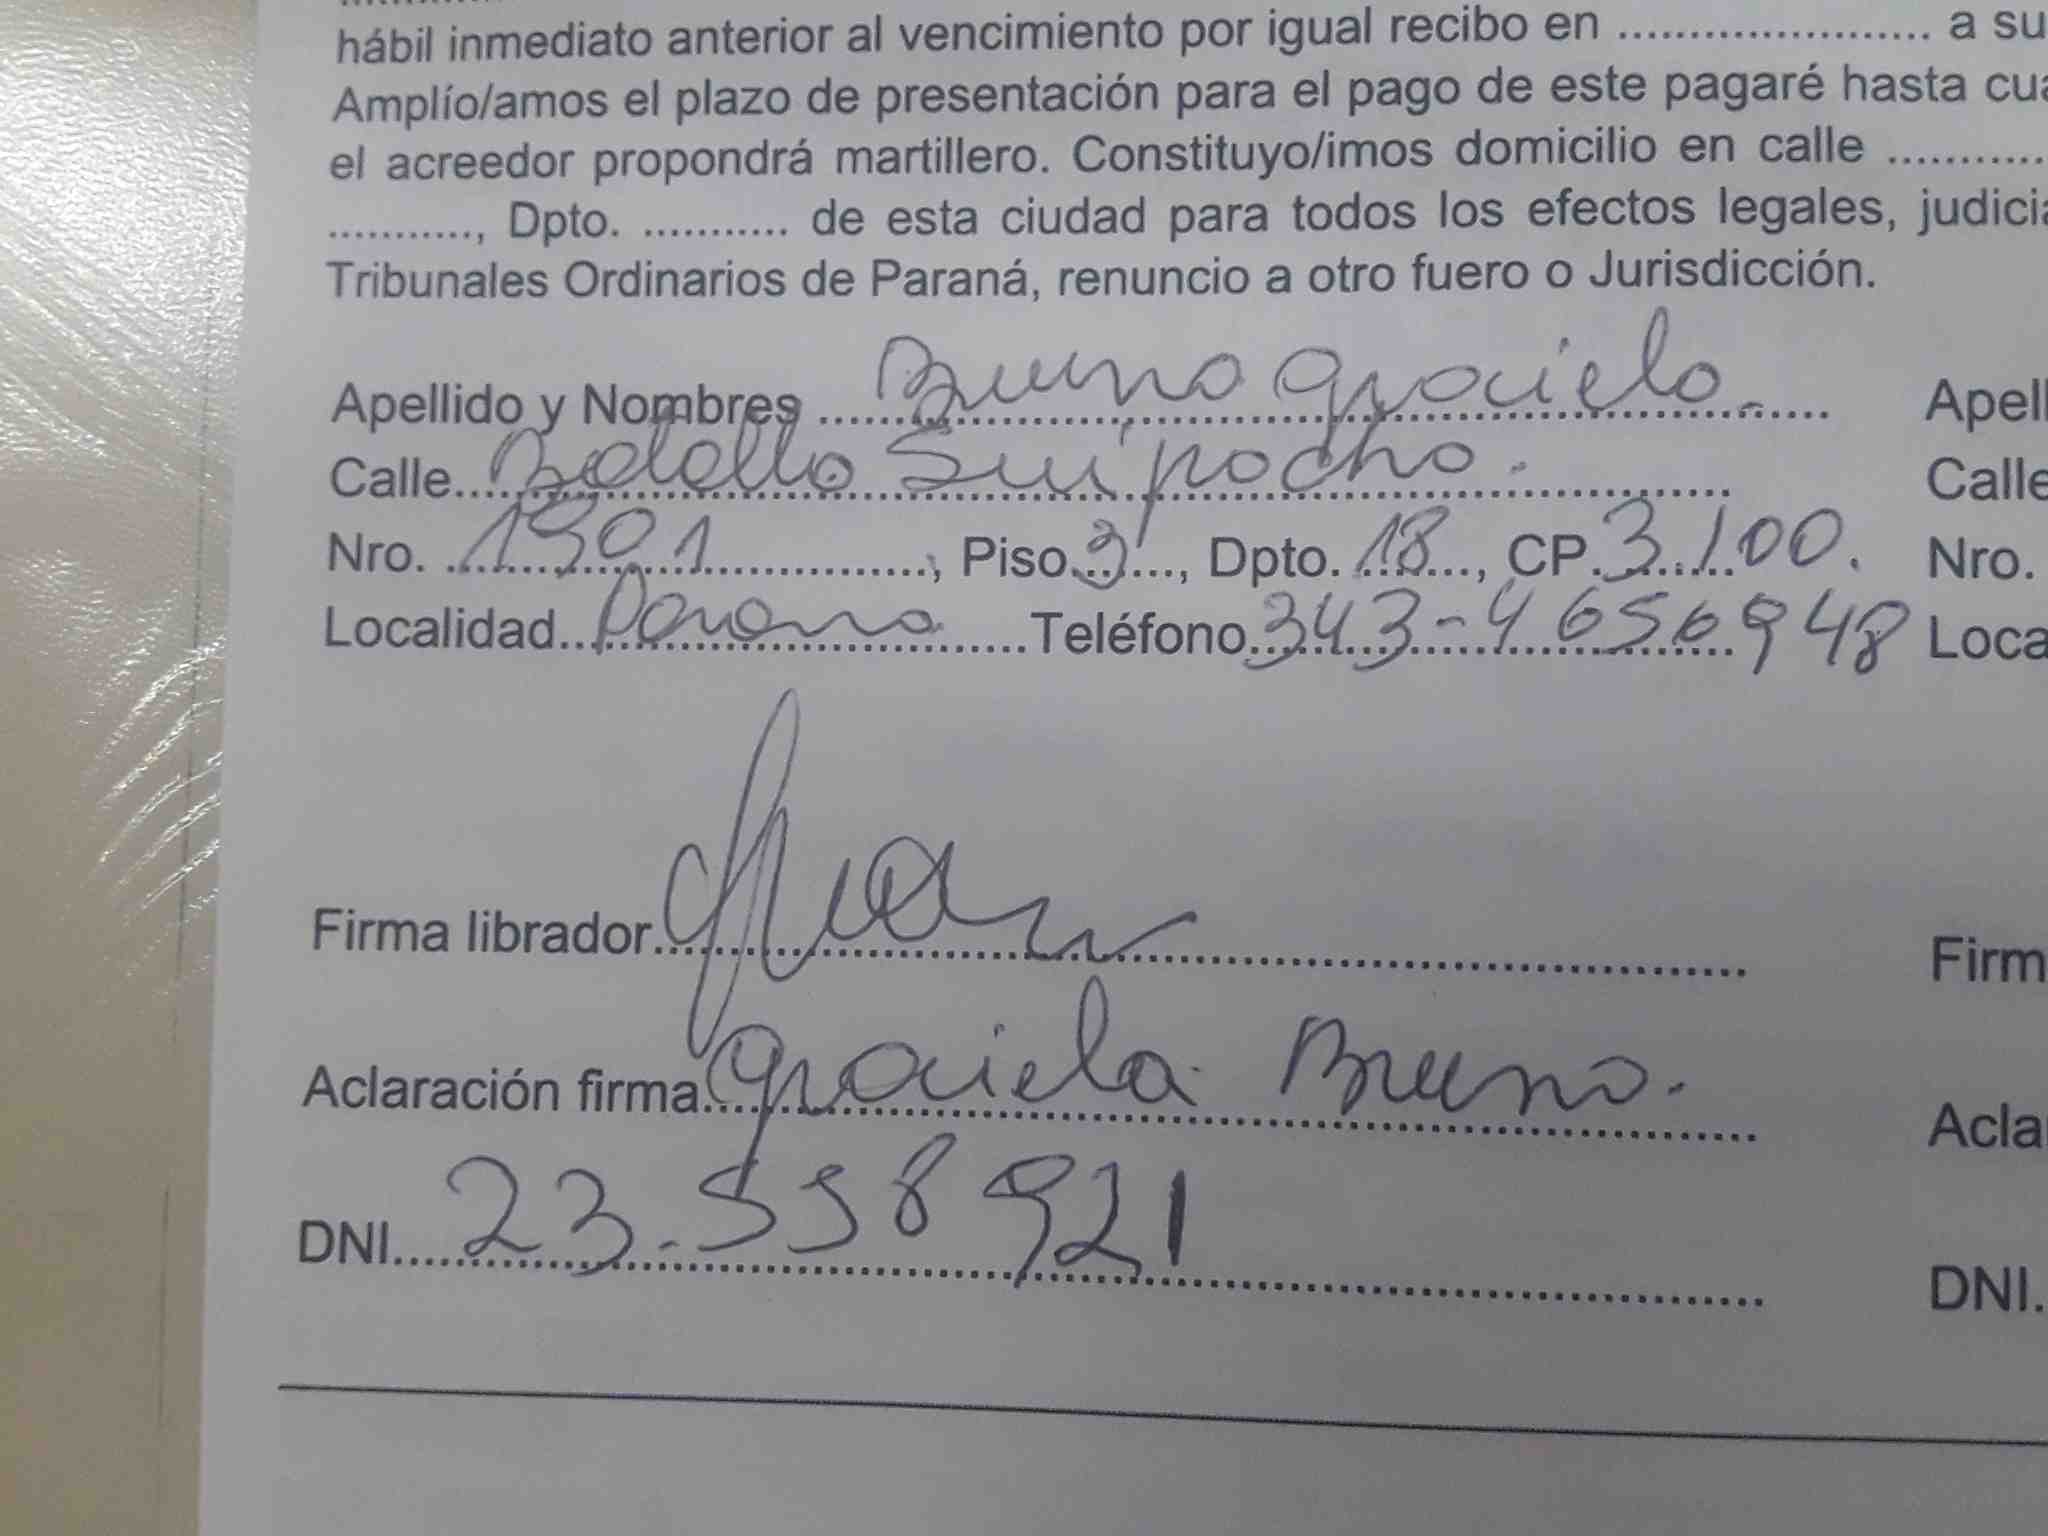 hábil inmediato anterior al vencimiento por igual recibo en ...................... a su
Amplío/amos el plazo de presentación para el pago de este pagaré hasta cua
el acreedor propondrá martillero. Constituyo/imos domicilio en calle ...........
.........., Dpto. .......... de esta ciudad para todos los efectos legales, judicia
Tribunales Ordinarios de Paraná, renuncio a otro fuero o Jurisdicción.
Apellido y Nombres Bruno Graciela. Apell
Calle Batalla Suipacha. Calle
Nro. 1901, Piso 3, Dpto. 18, CP. 3100. Nro.
Localidad Parana Teléfono 343-4656948 Loca
Firma librador Firm
Aclaración firma Graciela Bruno. Acla
DNI 23.558921 DNI.